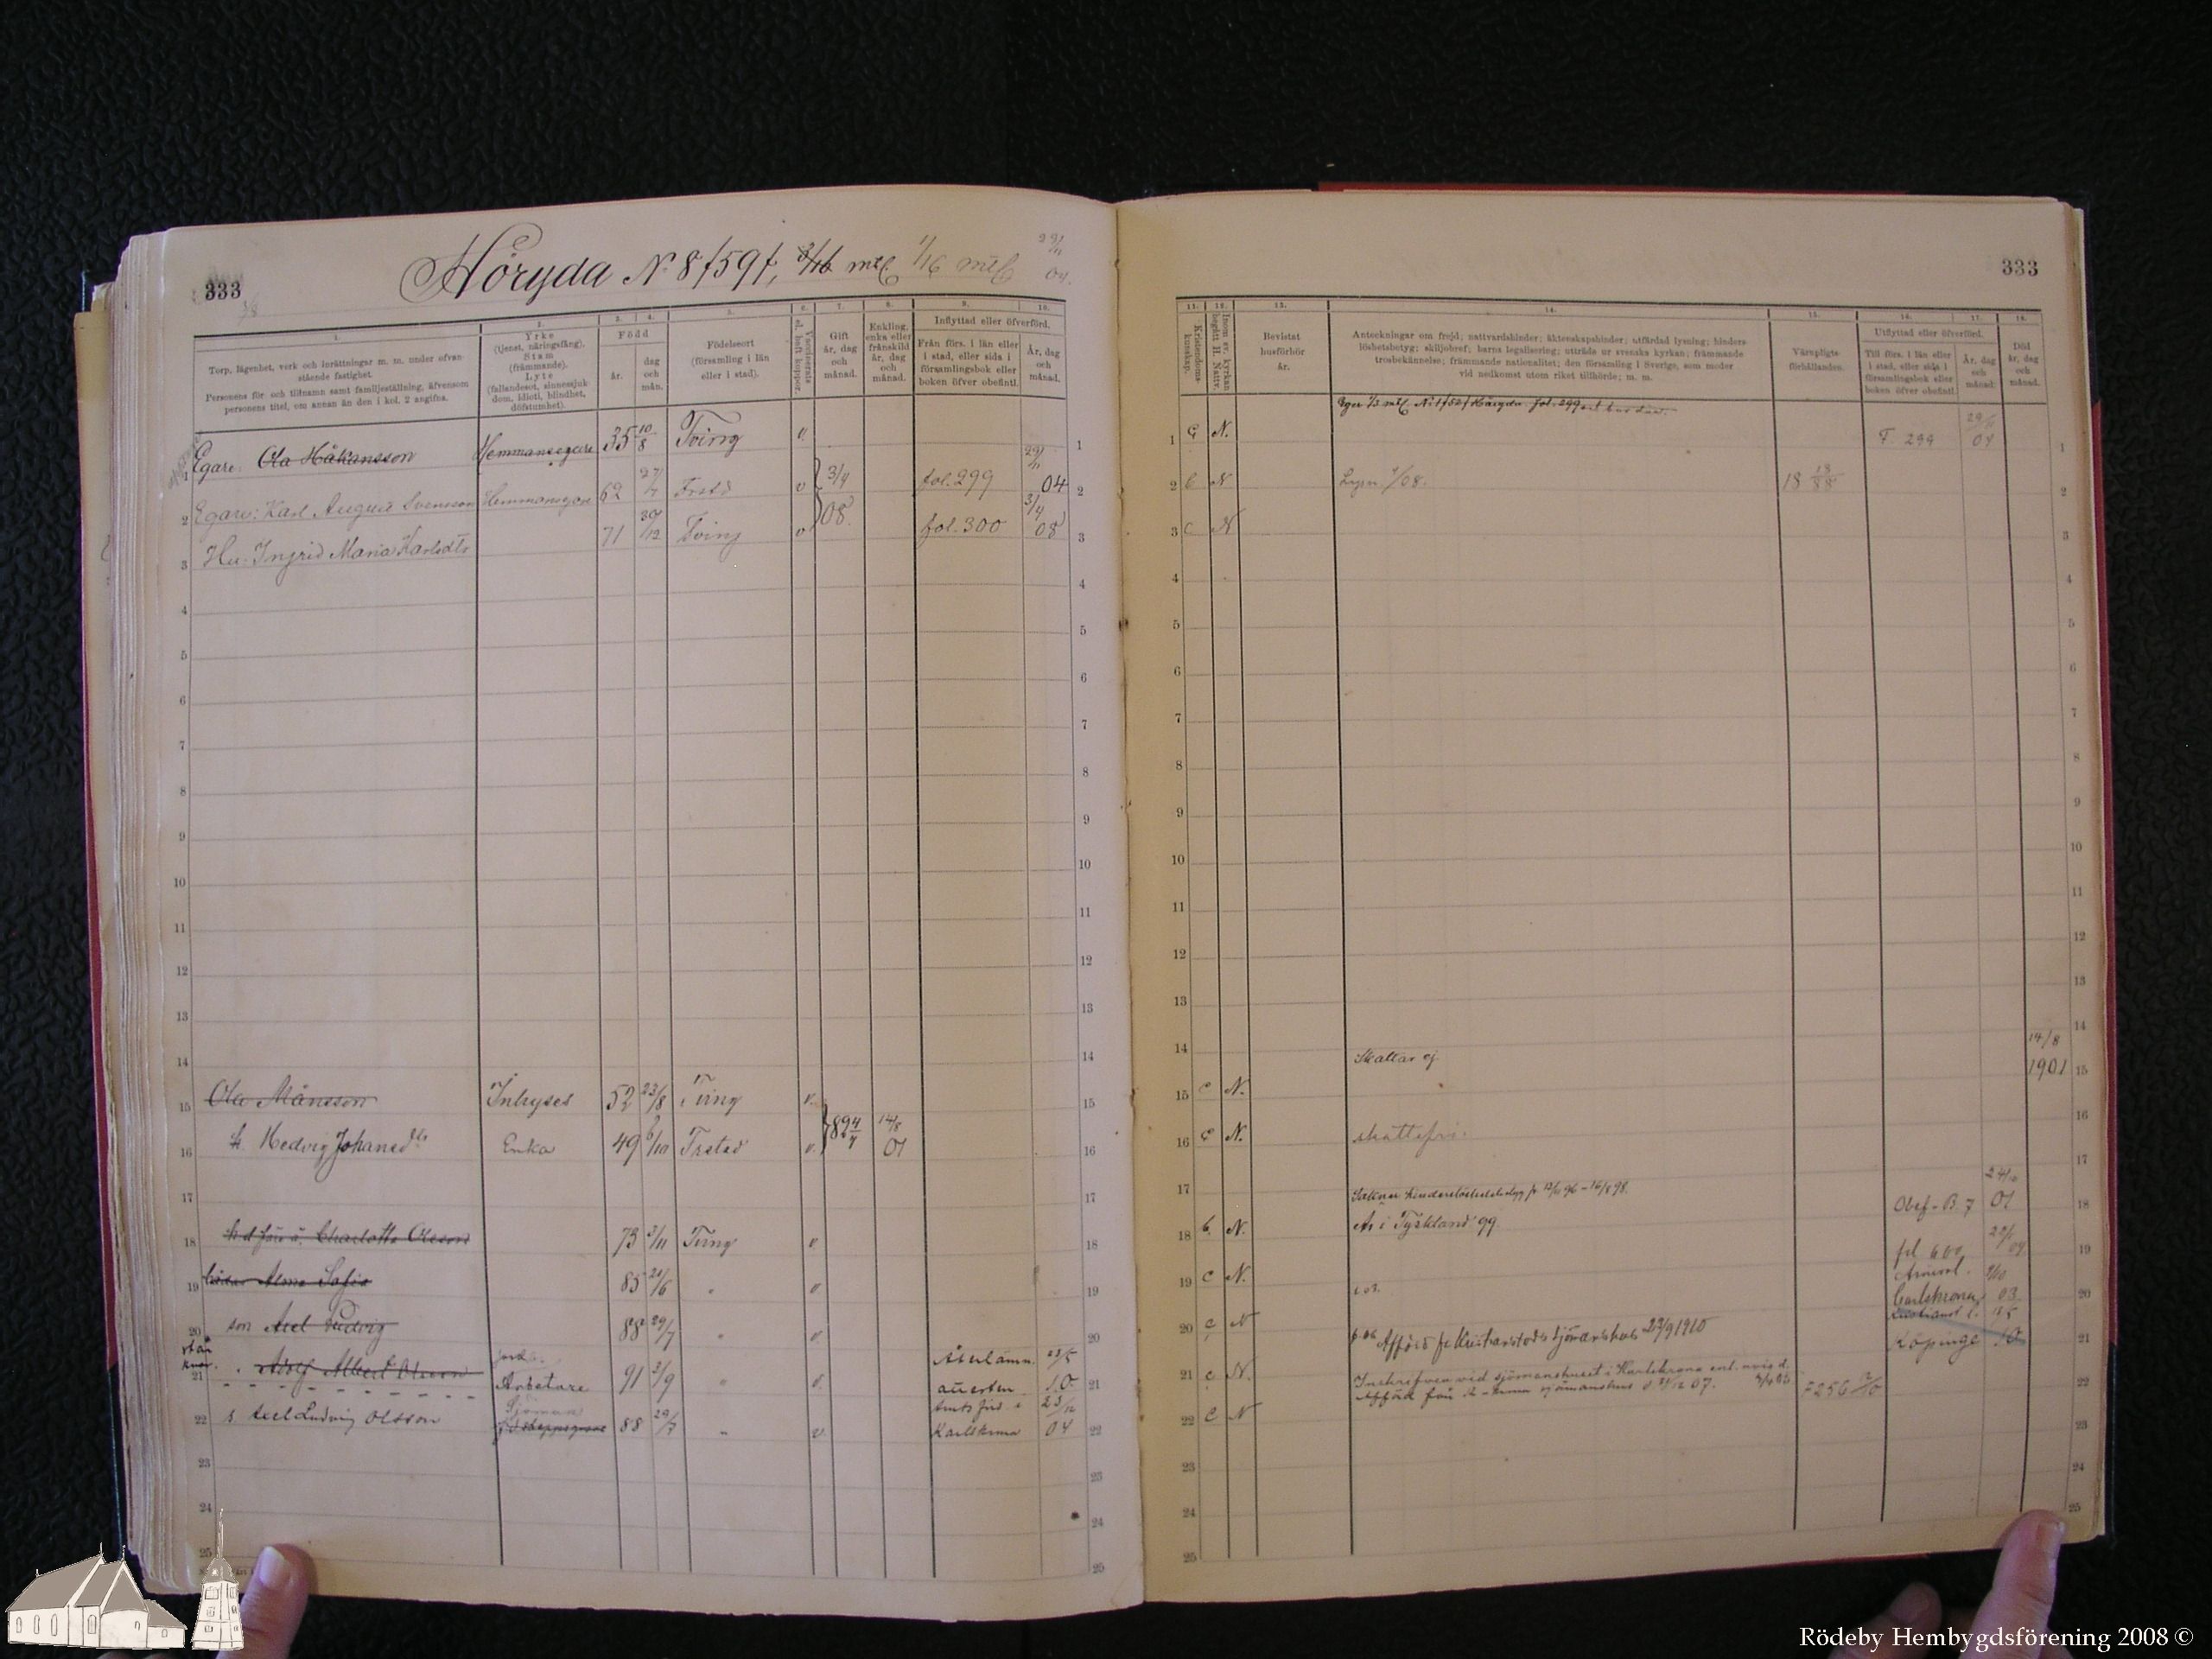 333
Höryda No 8 /59/, 3/16 mtl 1/16 mtl
29/11
04.
1.
Torp, lägenhet, verk och inrättningar m. m. under ofvan-
stående fastighet.
Personens för och tillnamn samt familjeställning, äfvensom
personens titel, om annan än den i kol. 2 angifna.
2.
Yrke
(tjenst, näringsfång).
Stam
(främmande).
Lyte
(fallandesot, sinnessjuk
dom, idioti, blindhet,
döfstumhet).
3. 4.
Född
år.
dag
och
mån.
5.
Födelseort
(församling i län
eller i stad).
6.
Vaccinerats
el. haft koppor.
7.
Gift
år, dag
och
månad.
8.
Enkling,
enka eller
frånskild
år, dag
och
månad.
9. 10.
Inflyttad eller öfverförd.
Från förs. i län eller
i stad, eller sida i
församlingsbok eller
boken öfver obefintl.
År, dag
och
månad.
1 Egare: Ola Håkansson Hemmansegare 35 10/8 Tving v. 1
2 Egare: Karl August Svensson Hemmansegare 62 27/7 Frstd v 3/4 08. fol. 299 29/11 04 2
3 Hu. Ingrid Maria Karlsdtr 71 30/12 Tving v fol. 300 3/4 08 3
4 4
5 5
6 6
7 7
8 8
9 9
10 10
11 11
12 12
13 13
14 14
15 Ola Månsson Inhyses 52 23/8 Tving v. 15
16 h. Hedvig Johansdtr Enka 49 6/10 Frstad v. 14/8 01 16
17 17
18 Charlotta Olsson 73 3/11 Tving v 18
19 Alma Sofia 85 21/6 " v. 19
20 son Axel Ludvig 88 29/7 " v 20
21 Adolf Albert Olsson Arbetare 91 3/9 " v. Återlämn. 21
22 s. Axel Ludvig Olsson Sjöman 88 29/7 " v. Karlskrona 23/12 04 22
23 23
24 24
25 25
333
11.
Kristendoms-
kunskap.
12.
Inom sv. kyrkan
begått H. Nattv.
13.
Bevistat
husförhör
år.
14.
Anteckningar om frejd; nattvardshinder; äktenskapshinder; utfärdad lysning; hinders
löshetsbetyg; skiljobref; barns legalisering; utträde ur svenska kyrkan; främmande
trosbekännelse; främmande nationalitet; den församling i Sverige, som moder
vid nedkomst utom riket tillhörde; m. m.
15.
Värnpligts-
förhållanden.
16. 17.
Utflyttad eller öfverförd.
Till förs. i län eller
i stad, eller sida i
församlingsbok eller
boken öfver obefintl.
År, dag
och
månad.
18.
Död
år, dag
och
månad.
Eger 1/3 mtl. No 1 /52/ Höryda fol. 299
1 C N. F. 299 29/11 04 1
2 C N Lysn. /08. 18 18/88 2
3 C N 3
4 4
5 5
6 6
7 7
8 8
9 9
10 10
11 11
12 12
13 13
14 14
Skattar ej. 14/8
15 C N. 1901 15
16 C N. skattefri. 16
17 17
18 C. N. Är i Tyskland 99. Obef-B. 7 24/10 01 18
19 C N. 19
20 C N Afförd fr Kristianstads sjömanshus 27/9 1910 Carlskrona 03. 20
21 C N. Inskrifven vid sjömanshuset i Karlskrona enl. Köpinge 10 21
22 C N Afförd från sjömanshus 07. F 256 22
23
24 24
25 25
Rödeby Hembygdsförening 2008 ©